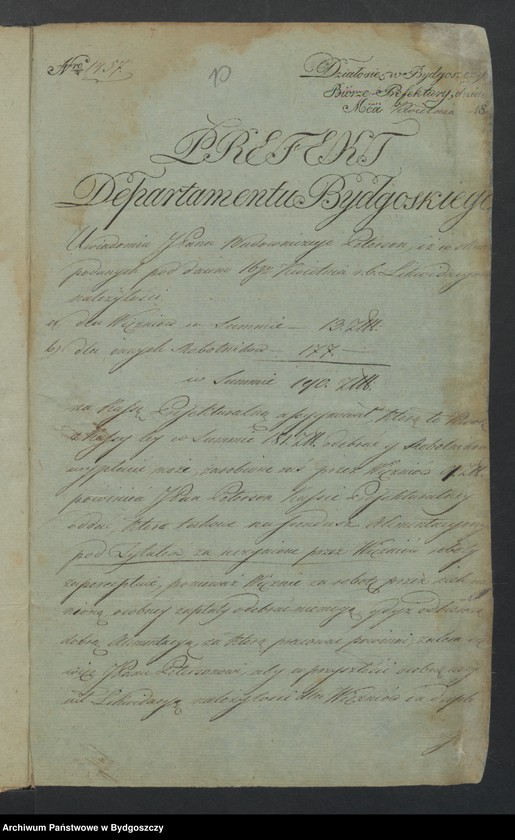 Nro 1457.
Działo się w Bydgoszczy
Biórze Prefektury, dnia
Mca Kwietnia 18
PREFEKT
Departamentu Bydgoskiego
Uwiadomia JPana Budowniczego Peterson, iż w
podanych pod dniem 16go Kwietnia r. b. Likwidacyi
należytości
a) dla Więźniów w Summie — 13. Złł.
b) dla innych Robotników — 177 —
w Summie 190. Złł.
na Kassę Prefekturalną assygnował, którą to
z Kassy tey w Summie 181 Złł. odebrać y Robotnikom
wypłacić może, zarobione zaś przez Więźniów
powinien JPan Peterson Kassie Prefekturalney
oddać, która takowe na fundusz Alimentacyiny
pod Tytułem, za uczynione przez Więźniów roboty
zapercypiuie, ponieważ Więźnie za robotę przez nich
nioną osobney zapłaty odebrać niemogą, gdyż odbieraią
dobrą Alimentacyą, za którą pracować powinni, zaleca się
więc JPanu Petersonowi, aby w przyszłości osobną
nił Likwidacyą należytości dla Więźniów za
Archiwum Państwowe w Bydgoszczy